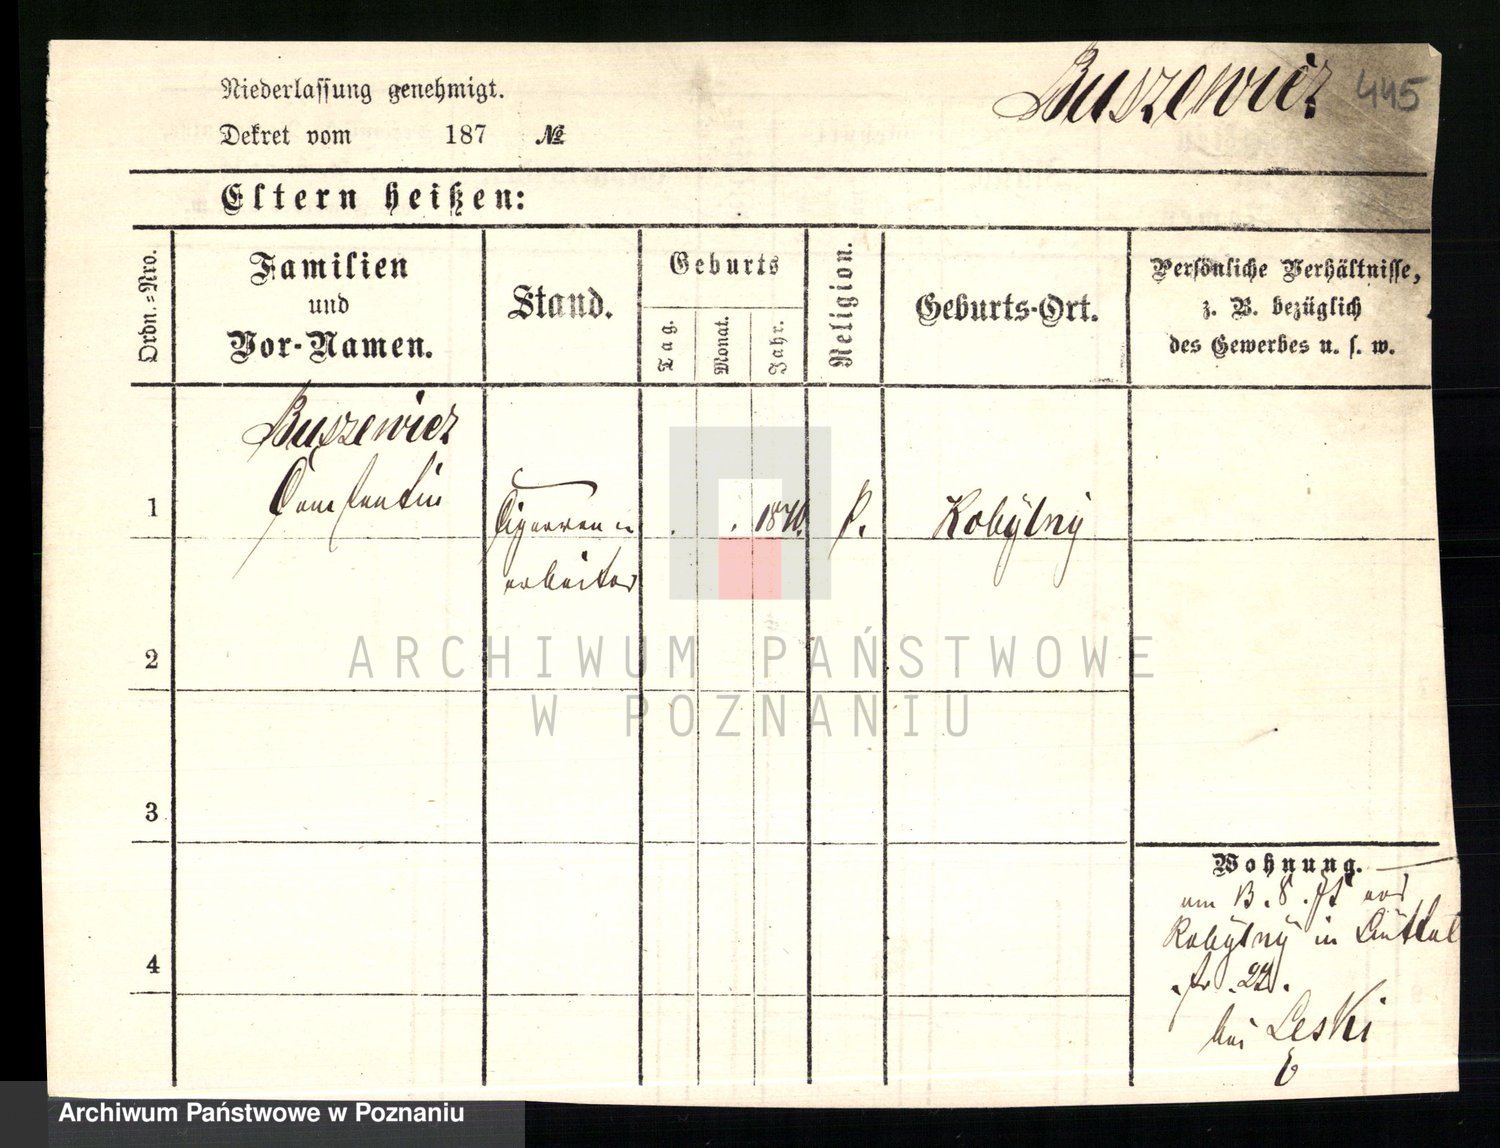 Niederlassung genehmigt.
Dekret vom 187 №
Buszewicz 445
Eltern heißen:
Ordn.=Nro.
Familien
und
Vor-Namen.
Stand.
Geburts
Tag.
Monat.
Jahr.
Religion.
Geburts-Ort.
Persönliche Verhältnisse,
z. B. bezüglich
des Gewerbes u. s. w.
Buszewicz
1 Constantin Cigarren = . . 1840.
arbeiter
2
3
4
Wohnung.
am 13. 8. aus
in
22.
bei Leski
ARCHIWUM PAŃSTWOWE
W POZNANIU
Archiwum Państwowe w Poznaniu